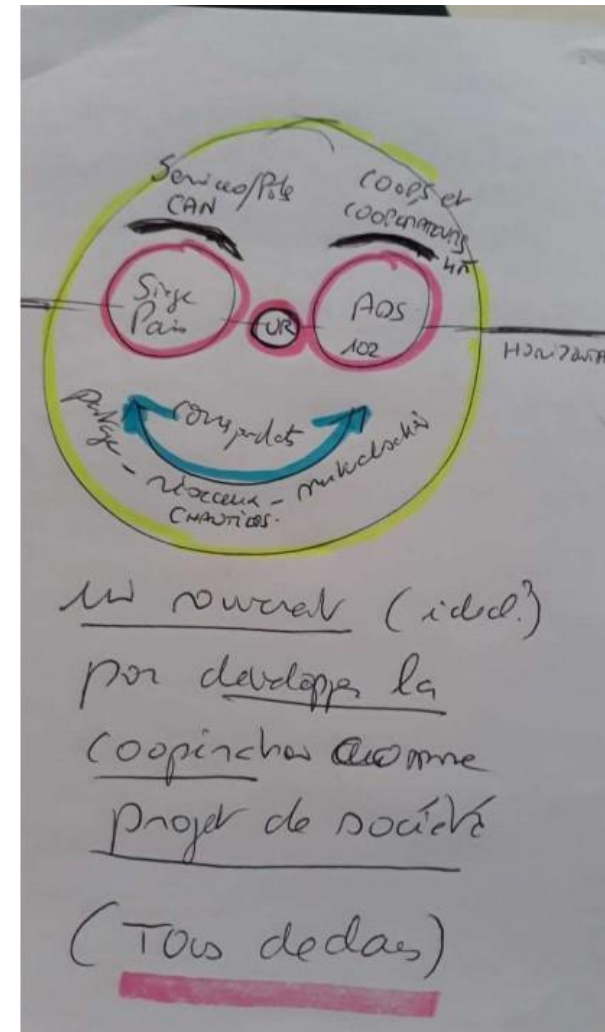 Services/Pôle
CAN
COOPS et
COOPERATEURS
4M
Siège
Paris
UR
ADS
102
HORIZONTA
partage - réseaux - mutualisation
CHANTIERS.
un souriant (idéal?)
por developper la
coopération comme
projet de société
(Tous dedans)